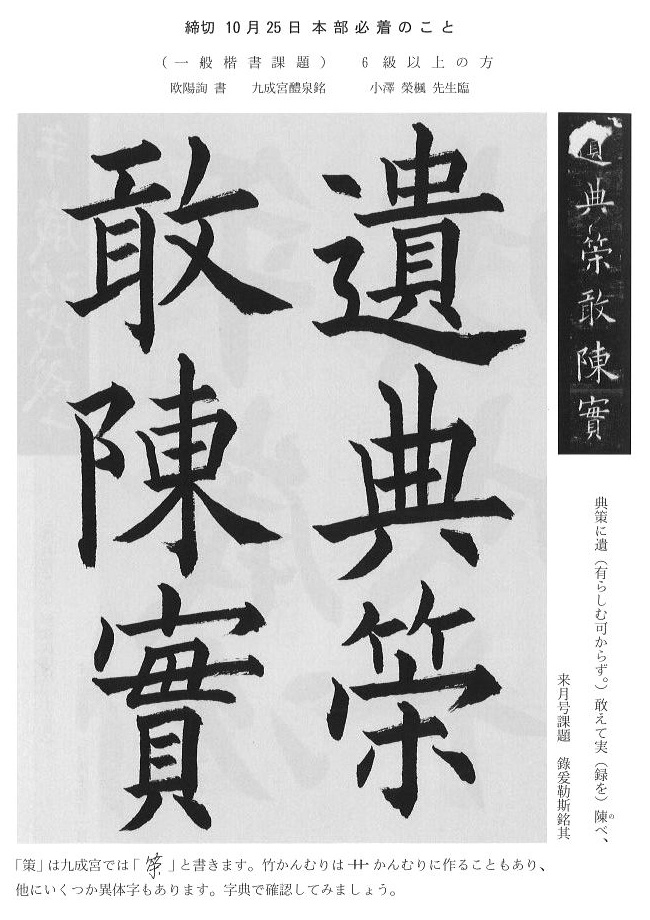 締切 10月25日 本部必着のこと
（一般楷書課題） 6級以上の方
欧陽詢 書 九成宮醴泉銘 小澤 榮楓 先生臨
遺典策
敢陳實
遺典策敢陳實
典策に遺（有らしむ可からず。）敢えて実（録を）陳べ、
の
来月号課題 錄爰勒斯銘其
「策」は九成宮では「筞」と書きます。竹かんむりは艹かんむりに作ることもあり、
他にいくつか異体字もあります。字典で確認してみましょう。